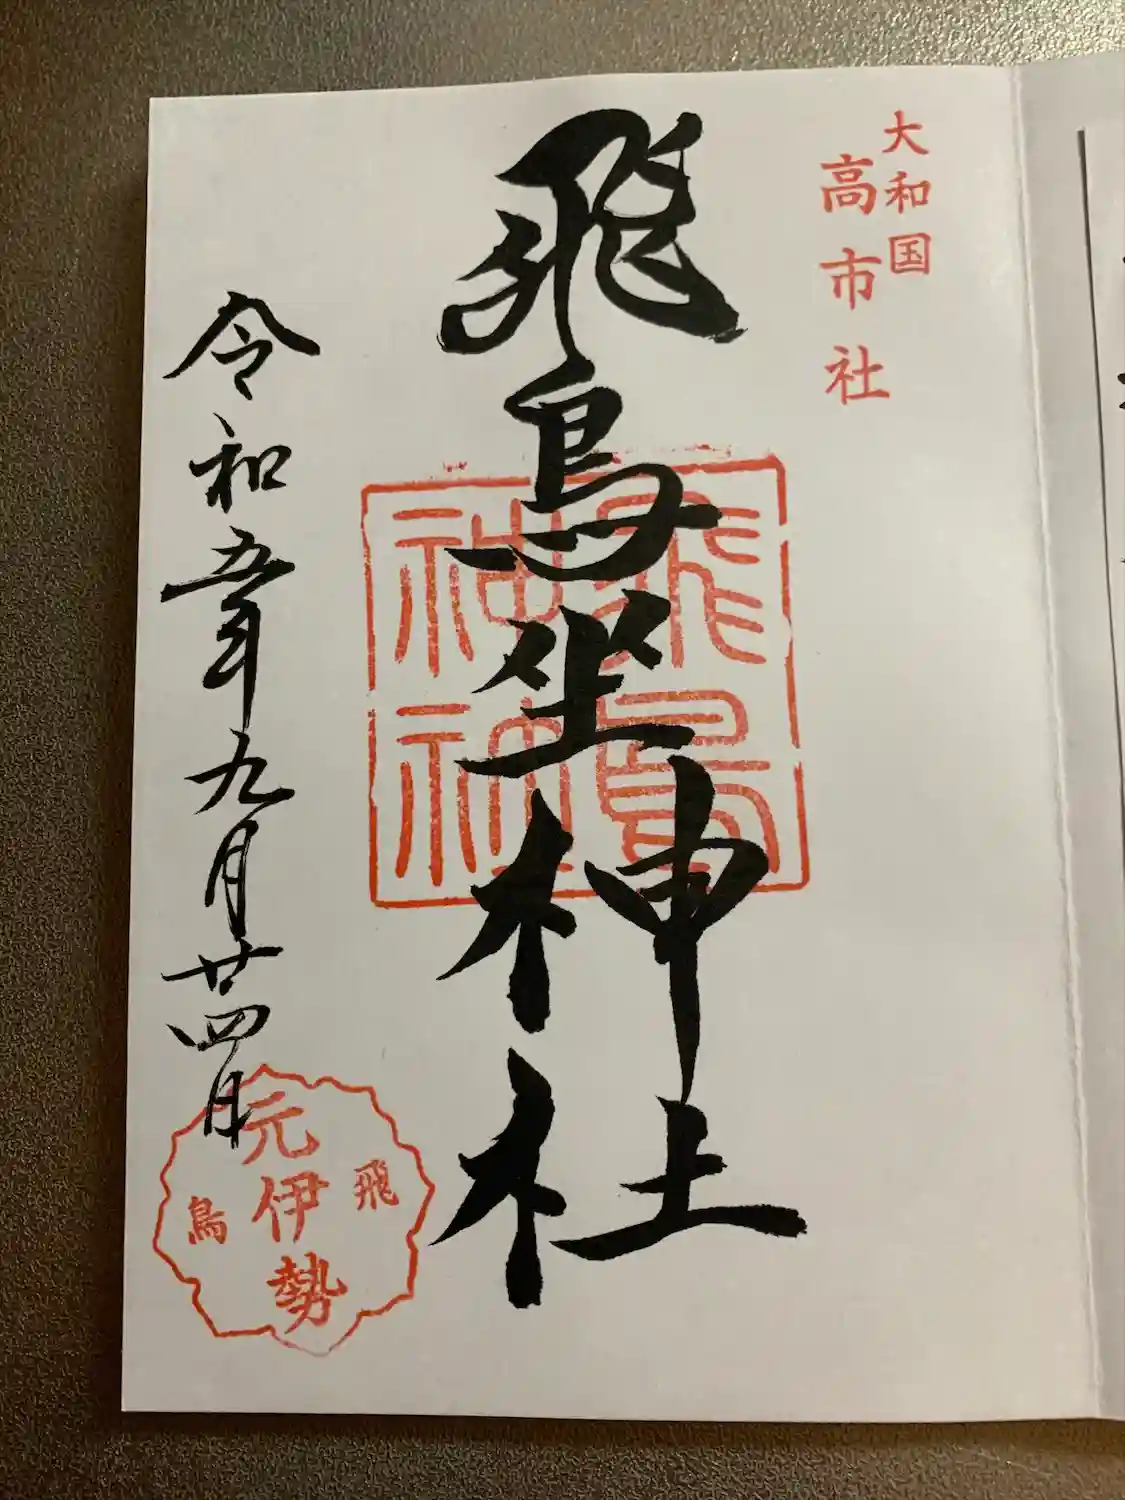 大和国
高市社
飛鳥坐神社
飛鳥
神社
令和五年九月廿四日
元伊勢
飛鳥